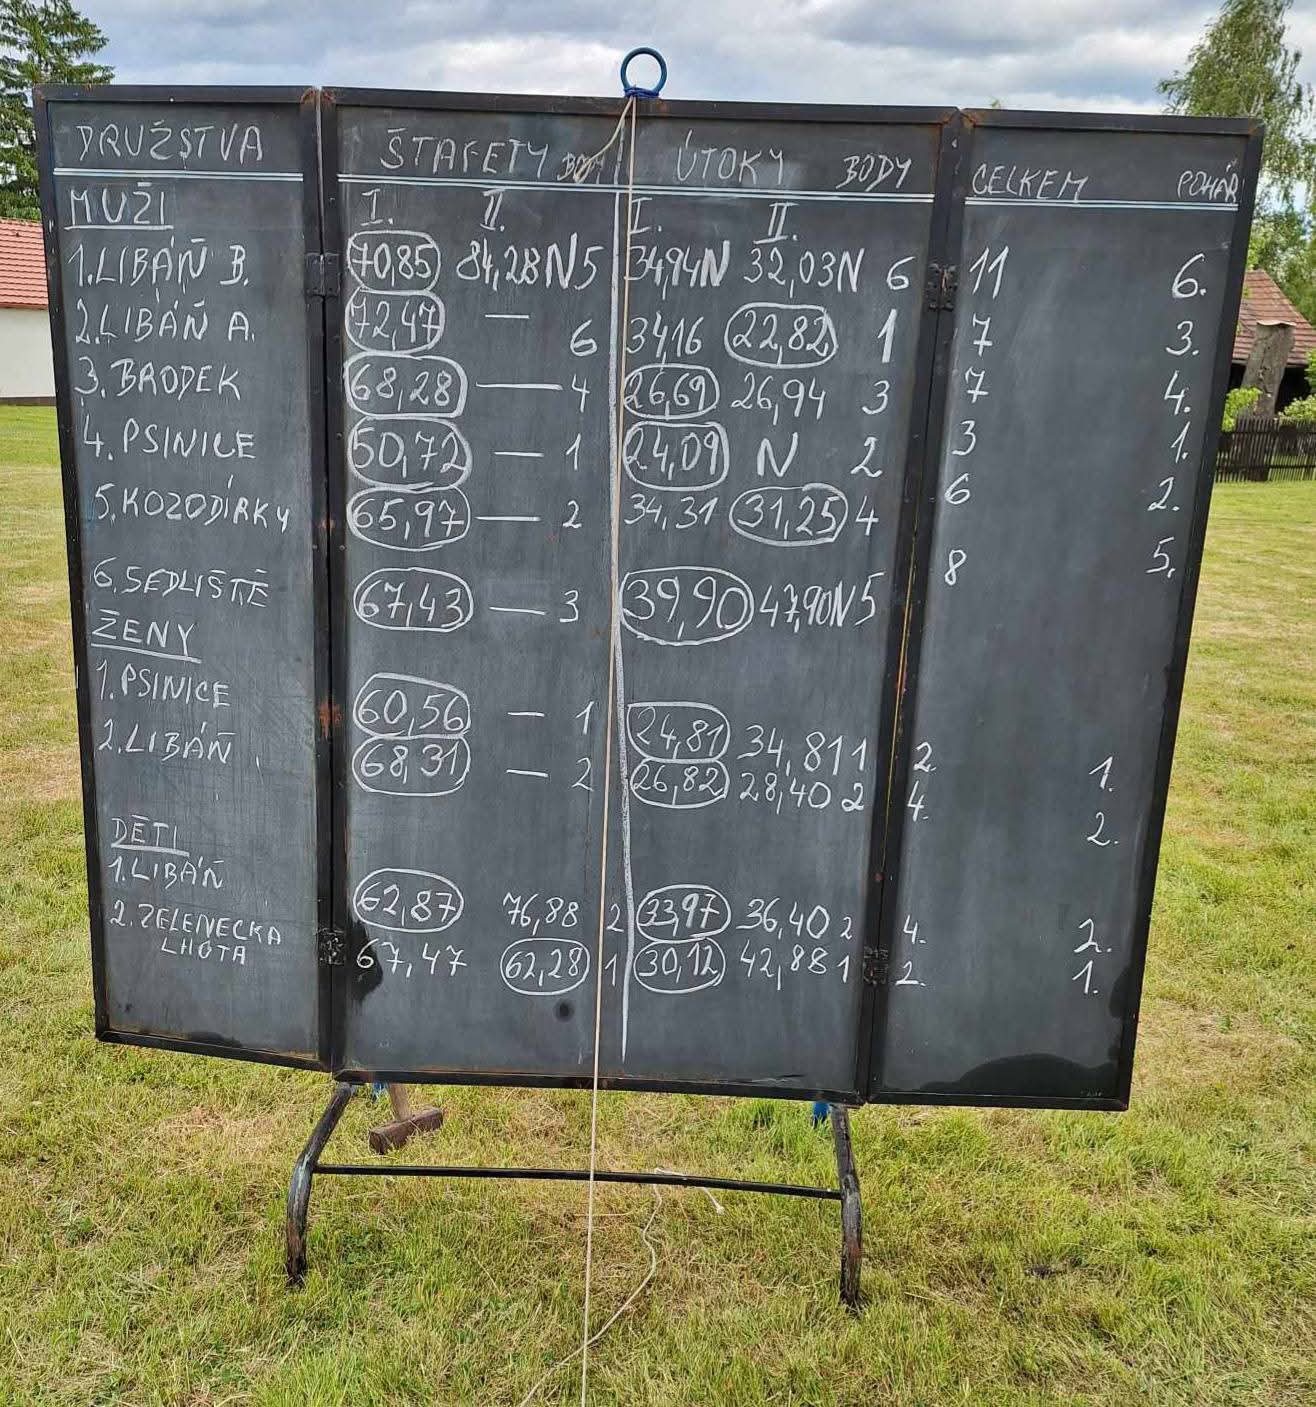 DRUŽSTVA ŠTAFETY BODY ÚTOKY BODY CELKEM POHÁR
MUŽI I. II. I. II.
1. LIBÁŇ B. 70,85 84,28N 5 34,94N 32,03N 6 11 6.
2. LIBÁŇ A. 72,47 — 6 34,16 22,82 1 7 3.
3. BRODEK 68,28 — 4 26,69 26,94 3 7 4.
4. PSINICE 50,72 — 1 24,09 N 2 3 1.
5. KOZODÍRKY 65,97 — 2 34,31 31,25 4 6 2.
6. SEDLIŠTĚ 67,43 — 3 39,90 47,90N 5 8 5.
ŽENY
1. PSINICE 60,56 — 1 24,81 34,81 1 2. 1.
2. LIBÁŇ 68,31 — 2 26,82 28,40 2 4. 2.
DĚTI
1. LIBÁŇ 62,87 76,88 2 33,97 36,40 2 4. 2.
2. ZELENECKA LHOTA 67,47 62,28 1 30,12 42,88 1 2. 1.